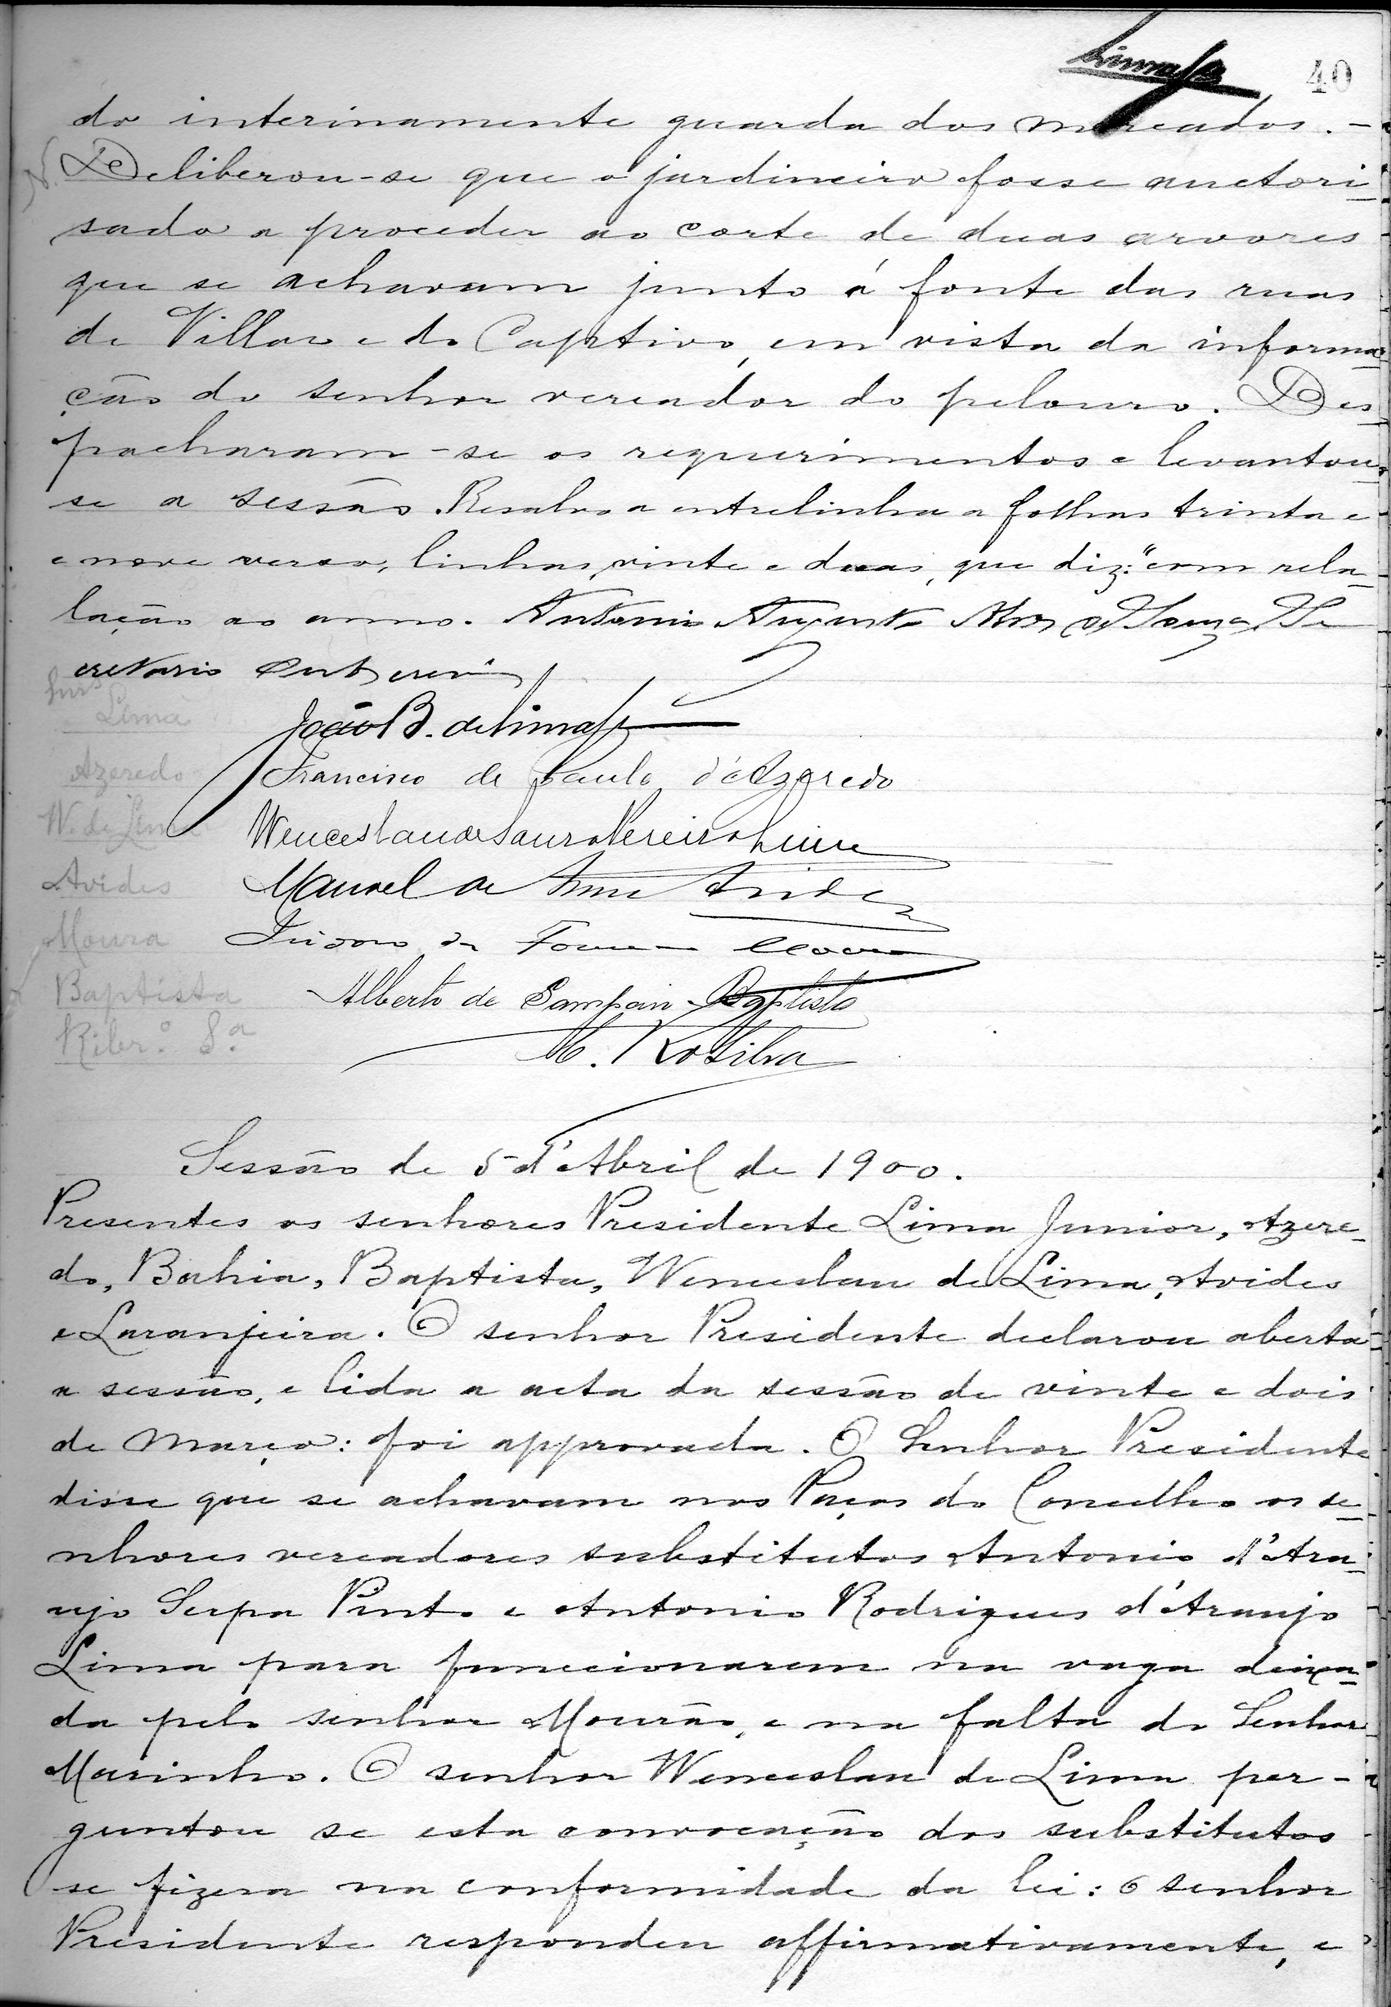 Lima Jr 40
do interinamente guarda dos mercados. -
N. Deliberou-se que o jardineiro fosse auctori-
sado a proceder ao corte de duas arvores
que se achavam junto á fonte das ruas
de Villar e do Captivo, em vista da informa-
ção do senhor vereador do pelouro. Des-
pacharam-se os requerimentos e levantou-
se a sessão. Resalvo a entrelinha a folhas trinta e
e nove verso, linhas, vinte e duas, que diz: "com rela-
lação ao anno. Antonio Augusto Alves de Souza, Se
cretario subscrevi
João B. de Lima Jr
Lima
Francisco de Paula d'Azeredo
Azeredo
Wenceslau de Sousa Pereira Lima
W. de Lima
Manoel de Avides
Avides
da Moura
Moura
Alberto de Sampaio Baptista
Baptista
M. Ro Silva
Ribr.º S.ª
Sessão de 5 d'Abril de 1900.
Presentes os senhores Presidente Lima Junior, Azere-
do, Bahia, Baptista, Wenceslau de Lima, Avides
e Laranjeira. O senhor Presidente declarou aberta
a sessão, e lida a acta da sessão de vinte e dois
de Março: foi approvada. O Senhor Presidente
disse que se achavam nos Paços do Concelho os se-
nhores vereadores substitutos Antonio d'Ara-
ujo Serpa Pinto e Antonio Rodrigues d'Araujo
Lima para funccionarem na vaga deixa-
da pelo senhor Mourão, e na falta do Senhor
Marinho. O senhor Wenceslau de Lima per-
guntou se esta convocação dos substitutos
se fizera na conformidade da lei: o senhor
Presidente respondeu affirmativamente, e